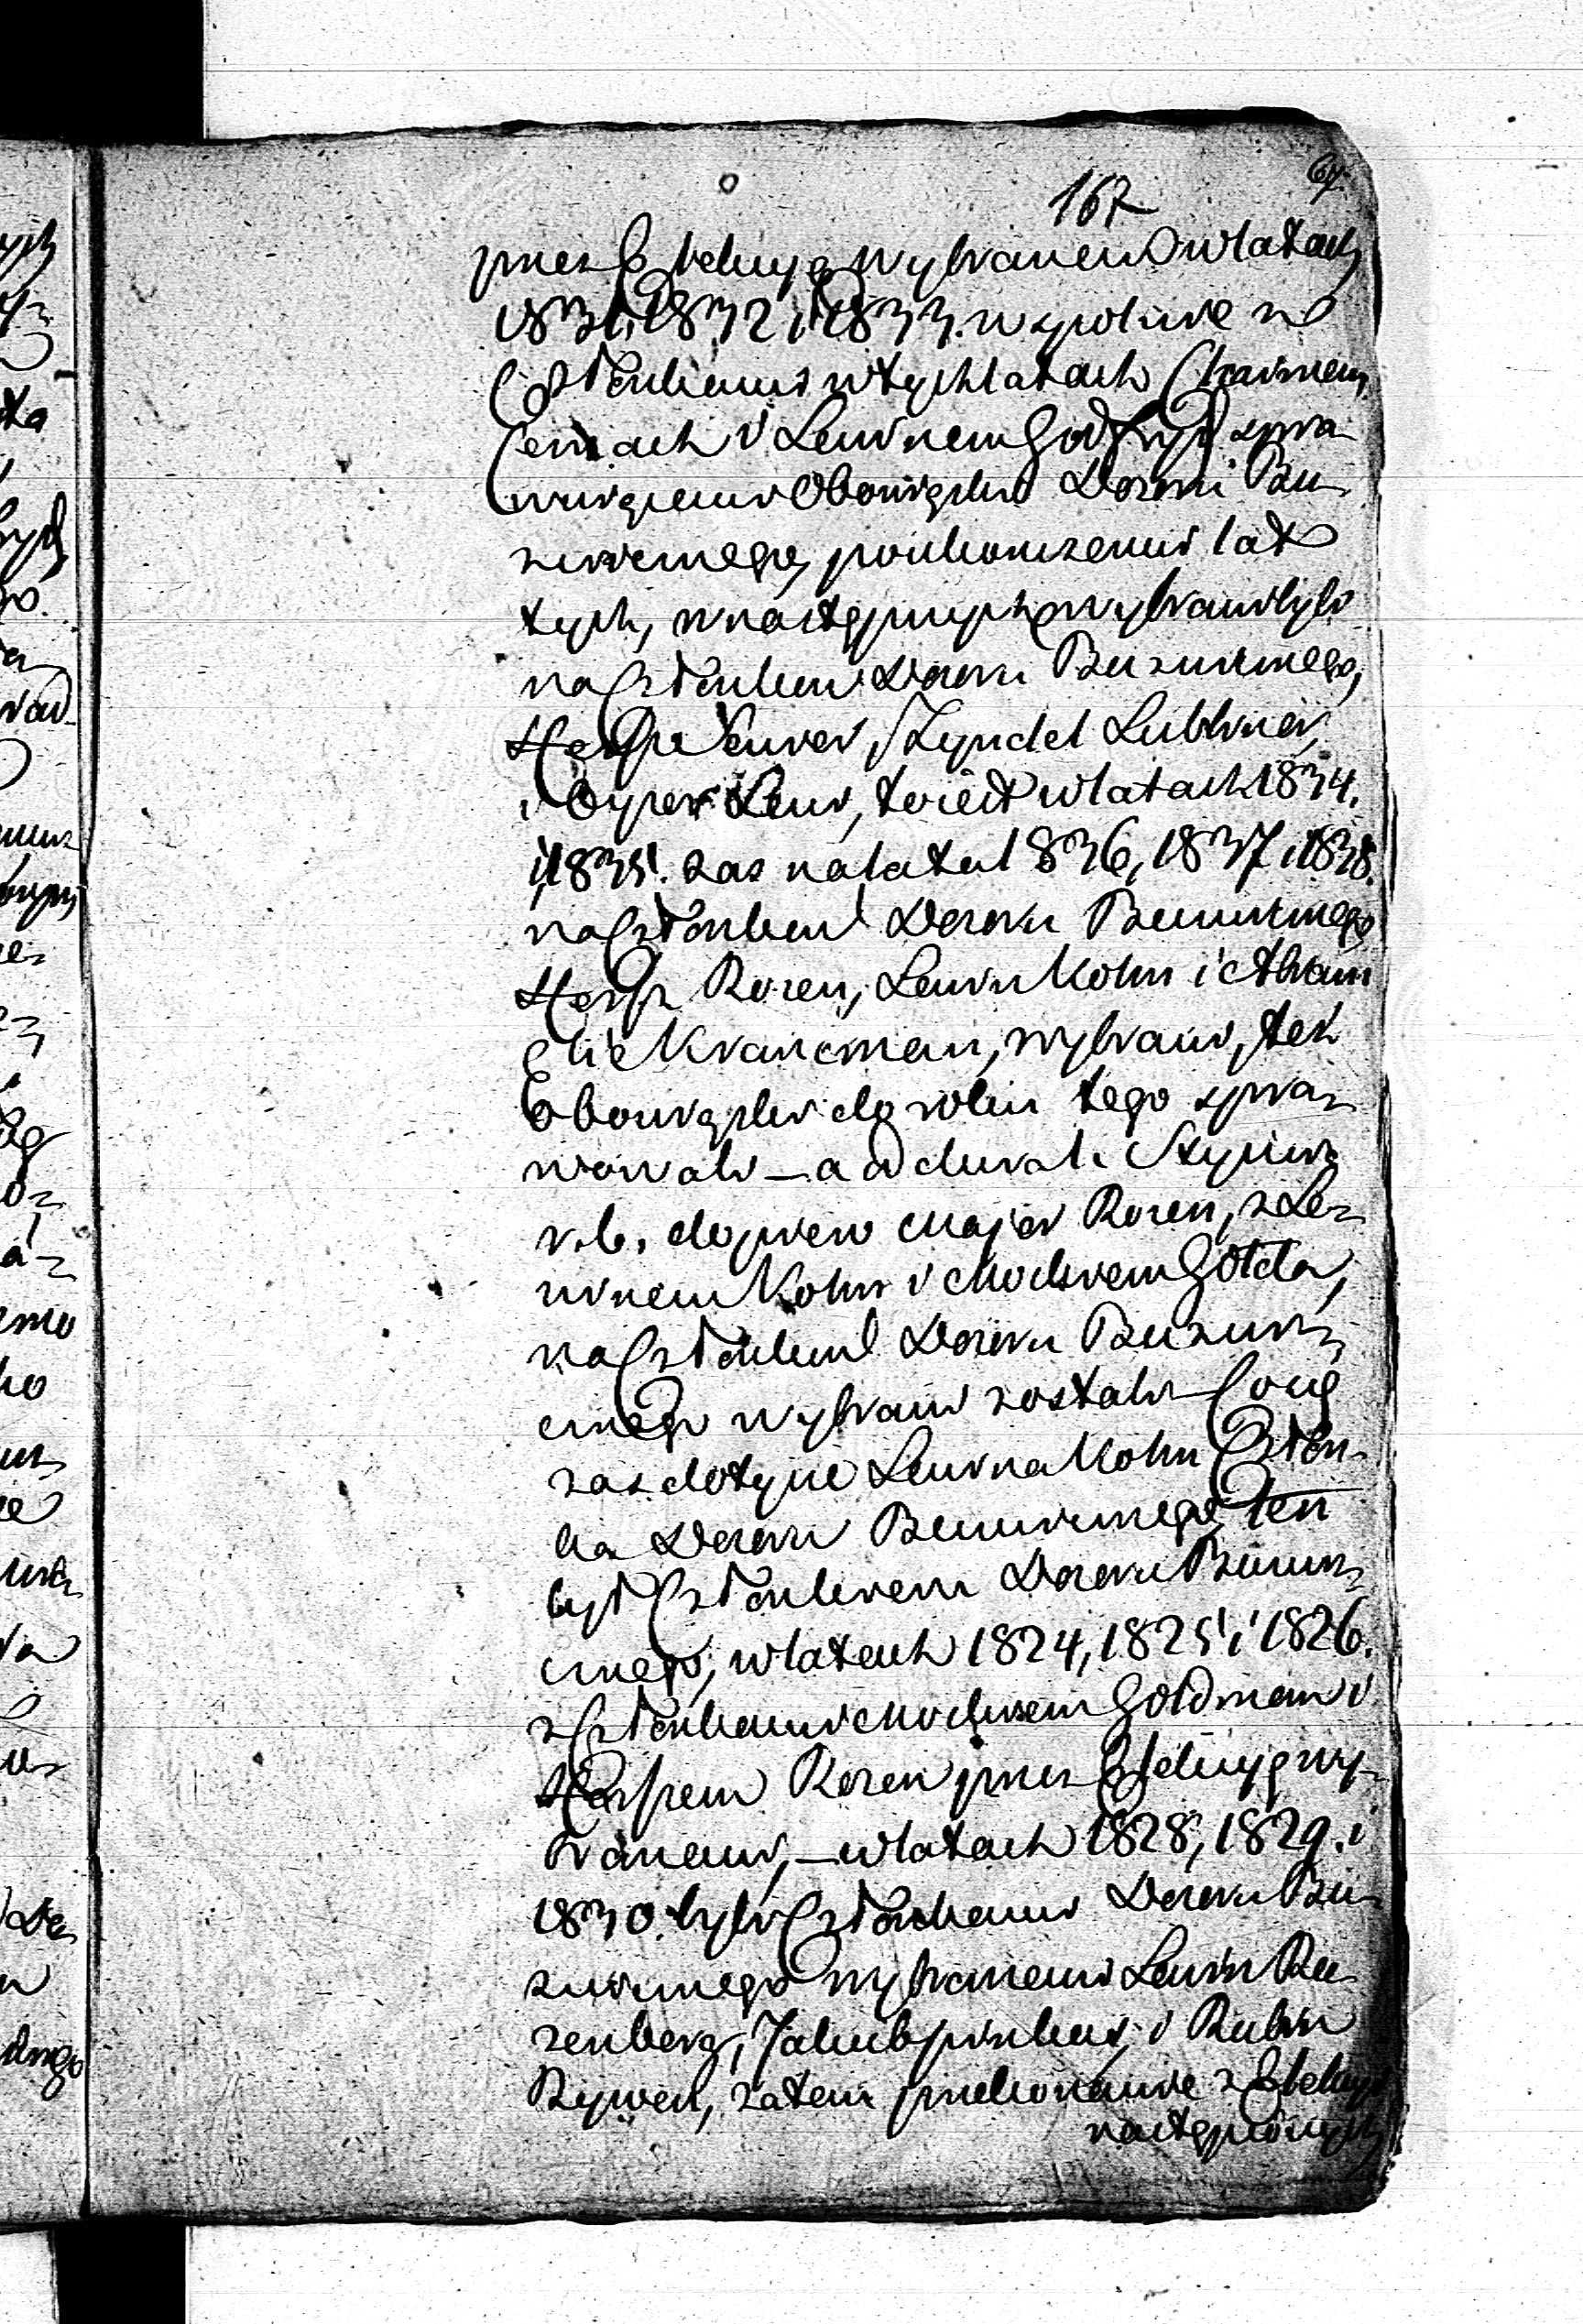 167
64.
przez Elekcyę wybranem w latach
1831, 1832 i 1833. wspolnie ze
Członkami w tych latach Chaimem
Cemach i Lewinem Godfryd spra-
wuiącemi Obowiązki Dozoru Buz-
zniczego, po ukonczeniu lat
tych, w następnych wybrani byli
na Członków Dozoru Buzniczego,
Herszke Lenwer, Szyndel Lubliner,
i Oyzer Lewi, to iest w latach 1834.
i 1835. zas na lata 1836, 1837 i 1838.
na Członków Dozoru Buzniczego
Hersz Rozen, Lewin Kohn i Abram
Elie Krancman, wybrani, też
Obowiązki do roku tego spra-
wowali — a od dnia 1. Stycznia
r. b. dopiero Majer Rozen, z Le-
winem Kohn i Moskiem Gołda,
na Członków Dozoru Buzni-
czego wybrani zostali — Co się
zas dotycze Lewina Kohn Człon-
ka Dozoru Buzniczego, ten
był Członkiem Dozoru Buzni-
czego, w latach 1824, 1825 i 1826.
z Członkami Moskiem Goldman i
Herszem Rozen przez Elekcyę wy-
branemi, — w latach 1828, 1829. i
1830. byli Członkami Dozoru Bu-
zniczego wybranemi Lewin Ro-
zenberg, Jakub Pinkus, i Rubin
Rypien, zatem przekonanie z Elekcyi
następnionych